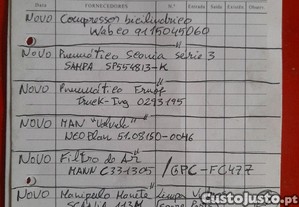 Data FORNECEDORES N.º Entrada Saída Exist. Observ.
NOVO Compressor bicilindrico
Wabco 9115045060
NOVO Pneumático Scania série 3
SAMPA SP554813-K
NOVO Pneumático Ermaf
Truck-Ing 0293195
NOVO MAN "Valvula"
NEOPlan 51.08150-0046
NOVO Filtro de Ar
MANN C331305 /GPC-FC477
NOVO Manipulo Manete Limpa
SCANIA 113M
CustoJusto.pt